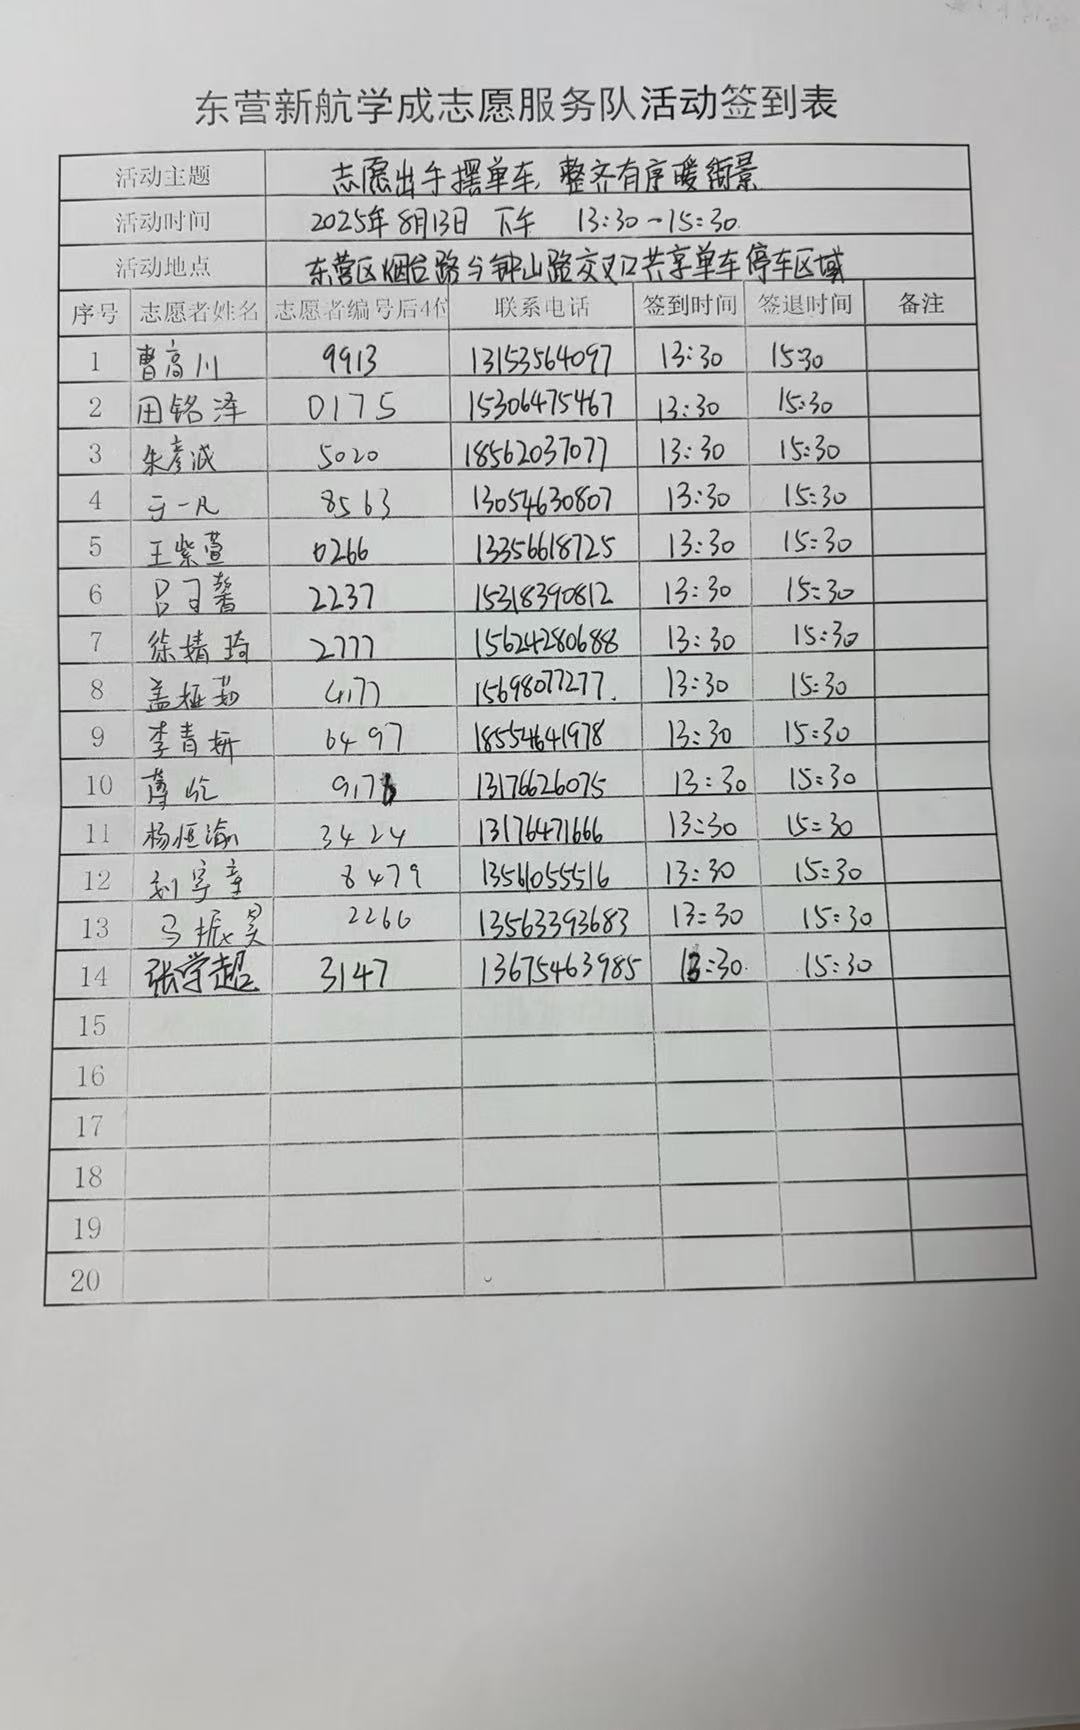 东营新航学成志愿服务队活动签到表
活动主题 志愿出手摆单车, 整齐有序暖街景
活动时间 2025年8月13日 下午 13:30-15:30
活动地点 东营区烟台路与钟山路交叉口共享单车停车区域
序号 志愿者姓名 志愿者编号后4位 联系电话 签到时间 签退时间 备注
1 曹高川 9913 13153564097 13:30 15:30
2 田铭泽 0175 15306475467 13:30 15:30
3 朱彦诚 5020 18562037077 13:30 15:30
4 于一凡 8563 13054630807 13:30 15:30
5 王紫萱 0266 13356618725 13:30 15:30
6 吕子馨 2237 15318390812 13:30 15:30
7 徐婧琦 2777 15624280688 13:30 15:30
8 盖桠茹 4177 15698077277. 13:30 15:30
9 李青妍 6497 18554641978 13:30 15:30
10 13176626075 13:30 15:30
11 杨恒渝 3424 13176471666 13:30 15:30
12 刘宇童 8479 13561055516 13:30 15:30
13 马振昊 2266 13563393683 13:30 15:30
14 张学超 3147 13675463985 13:30 15:30
15
16
17
18
19
20